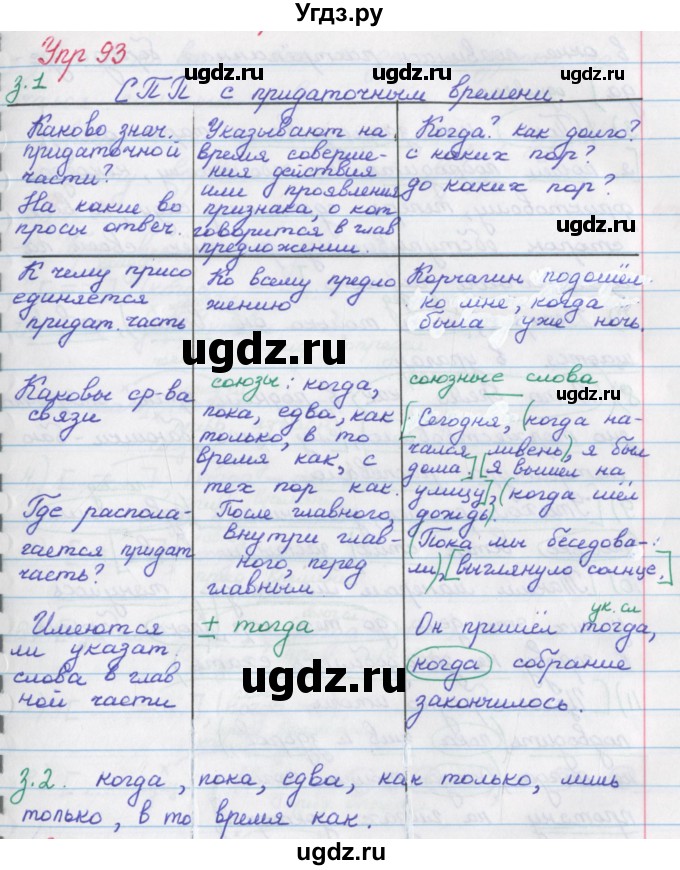 Угдз.ру
Упр 93
з.1
СПП с придаточным времени.
Каково знач.
придаточной
части?
На какие во
просы отвеч.
Указывают на
время соверше-
ния действия
или проявления
признака, о кот
говорится в глав
предложении.
Когда? как долго?
с каких пор?
до каких пор?
К чему присо
единяется
придат. часть
Ко всему предло
жению
Корчагин подошёл
ко мне, когда
была уже ночь.
Каковы ср-ва
связи
союзы: когда,
пока, едва, как
только, в то
время как, с
тех пор как.
союзные слова
[Сегодня, (когда на-
чался ливень), я был
дома] [Я вышел на
улицу], (когда шёл
дождь).
Где распола-
гается придат
часть?
После главного,
внутри глав-
ного, перед
главным.
(Пока мы беседова-
ли), [выглянуло солнце.]
Имеются
ли указат.
слова в глав
ной части
± тогда
ук. сл
Он пришёл тогда,
когда собрание
закончилось.
з.2. когда, пока, едва, как только, лишь
только, в то время как.
ugdz.ru
ugdz.ru
ugdz.ru
ugdz.ru
ugdz.ru
ugdz.ru
ugdz.ru
ugdz.ru
ugdz.ru
ugdz.ru
ugdz.ru
ugdz.ru
ugdz.ru